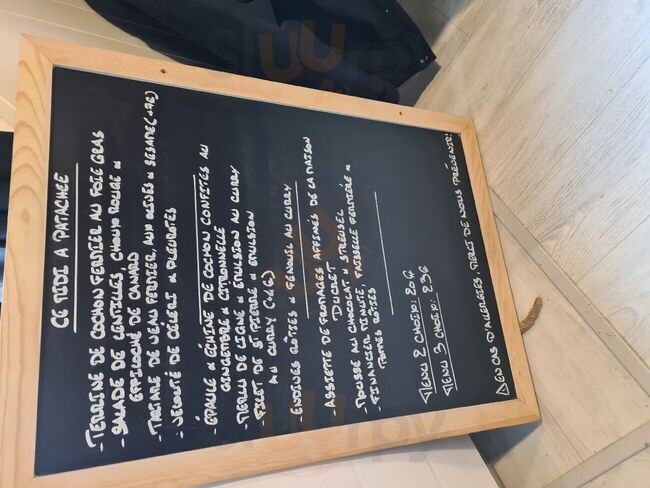 CE MIDI A PATACHÉE
- TERRINE DE COCHON FERMIER AU FOIE GRAS
- SALADE DE LENTILLES, CHOUX ROUGE &
EFFILOCHÉ DE CANARD
- TARTARE DE VEAU FERMIER, AUX OLIVES & SÉSAME
- VELOUTÉ DE CÉLERI & PLEUROTES
- ÉPAULE & ÉCHINE DE COCHON CONFITES AU
GINGEMBRE & CITRONNELLE
- MERLU DE LIGNE & ÉMULSION AU CURRY
- FILET DE ST PIERRE & ÉMULSION
AU CURRY
- ENDIVES RÔTIES & FENOUIL AU CURRY
- ASSIETTE DE FROMAGES AFFINÉS DE LA MAISON
DUCRET
- MOUSSE AU CHOCOLAT & STREUSEL
- FINANCIER MINUTE, FAISSELLE FERMIÈRE &
POMES RÔTIES
MENU 2 CHOIX: 20€
MENU 3 CHOIX: 23€
EN CAS D'ALLERGIES, MERCI DE NOUS PRÉVENIR!